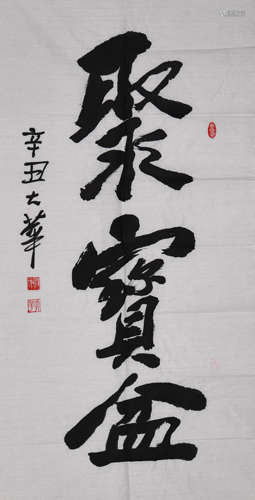 聚寶盆
辛丑大華